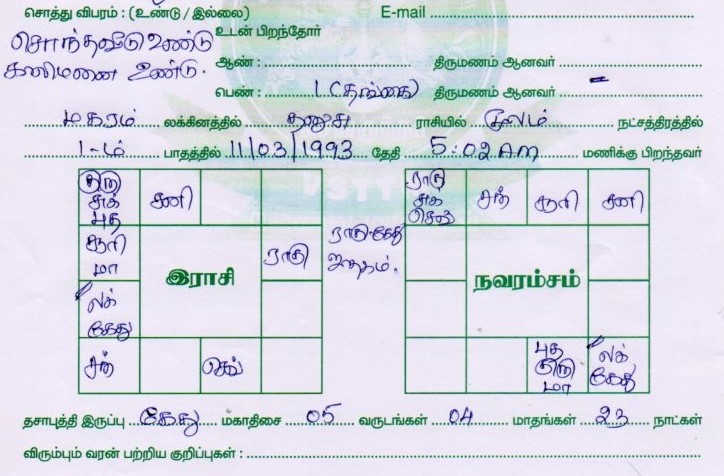 சொத்து விபரம் : (உண்டு / இல்லை) E-mail
சொந்தவீடு உண்டு உடன் பிறந்தோர்
காலிமனை உண்டு. ஆண் : திருமணம் ஆனவர்
பெண் : 1 (தங்கை) திருமணம் ஆனவர் –
மகரம் லக்கினத்தில் தனுசு ராசியில் மூலம் நட்சத்திரத்தில்
1-ம் பாதத்தில் 11/03/1993 தேதி 5:02 Am மணிக்கு பிறந்தவர்
குரு
சுக்
புத
சனி
சூரி
மா
ராகு
இராசி
லக்
கேது
சந்
செவ்
ராகு-கேது
ராகு
சுக்
செவ்
சந்
சூரி
சனி
நவரம்சம்
புத
குரு
மா
லக்
கேது
தசாபுத்தி இருப்பு கேது மகாதிசை 05 வருடங்கள் 04 மாதங்கள் 23 நாட்கள்
விரும்பும் வரன் பற்றிய குறிப்புகள் :